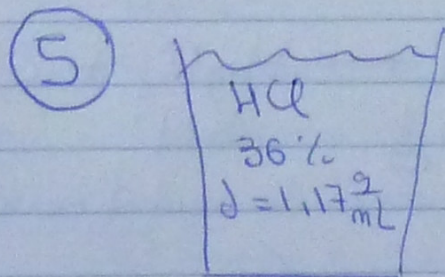 5
HCl
36%
d = 1,17 g/mL